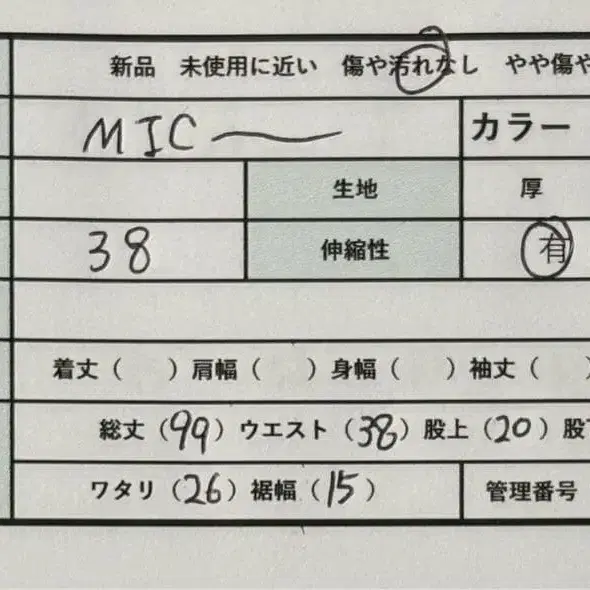 新品 未使用に近い 傷や汚れなし やや傷や
MIC カラー
生地 厚
38 伸縮性 有
着丈( )肩幅( )身幅( )袖丈( )
総丈(99)ウエスト(38)股上(20)股下
ワタリ(26)裾幅(15) 管理番号